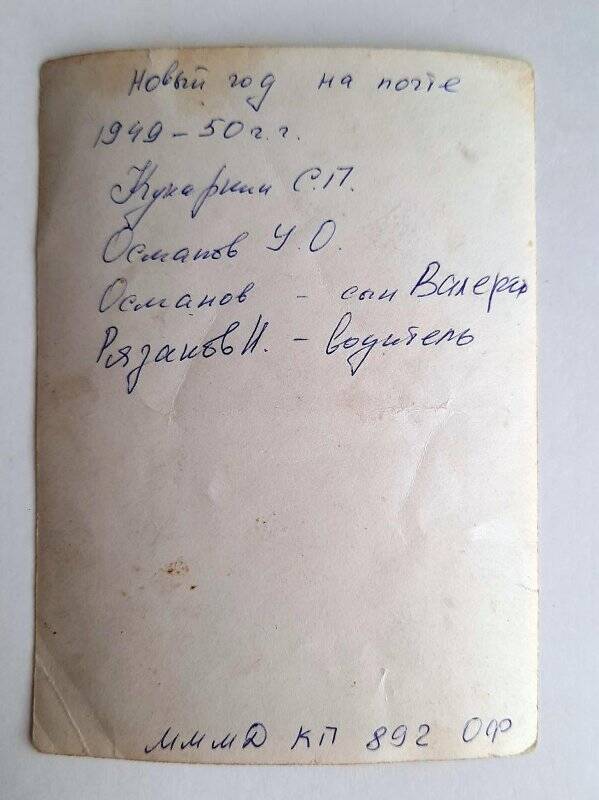 Новый год на почте
1949-50 г.г.
Кухаркин С.П.
Османов У.О.
Османов - сын Валера
Рязанов Н. - водитель
МММД КП 892 ОФ